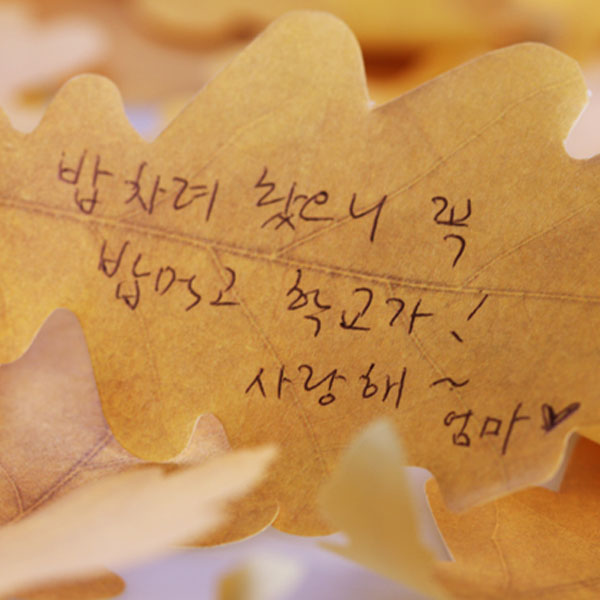 밥차려 놨으니 꼭
밥먹고 학교가!
사랑해~
엄마♥